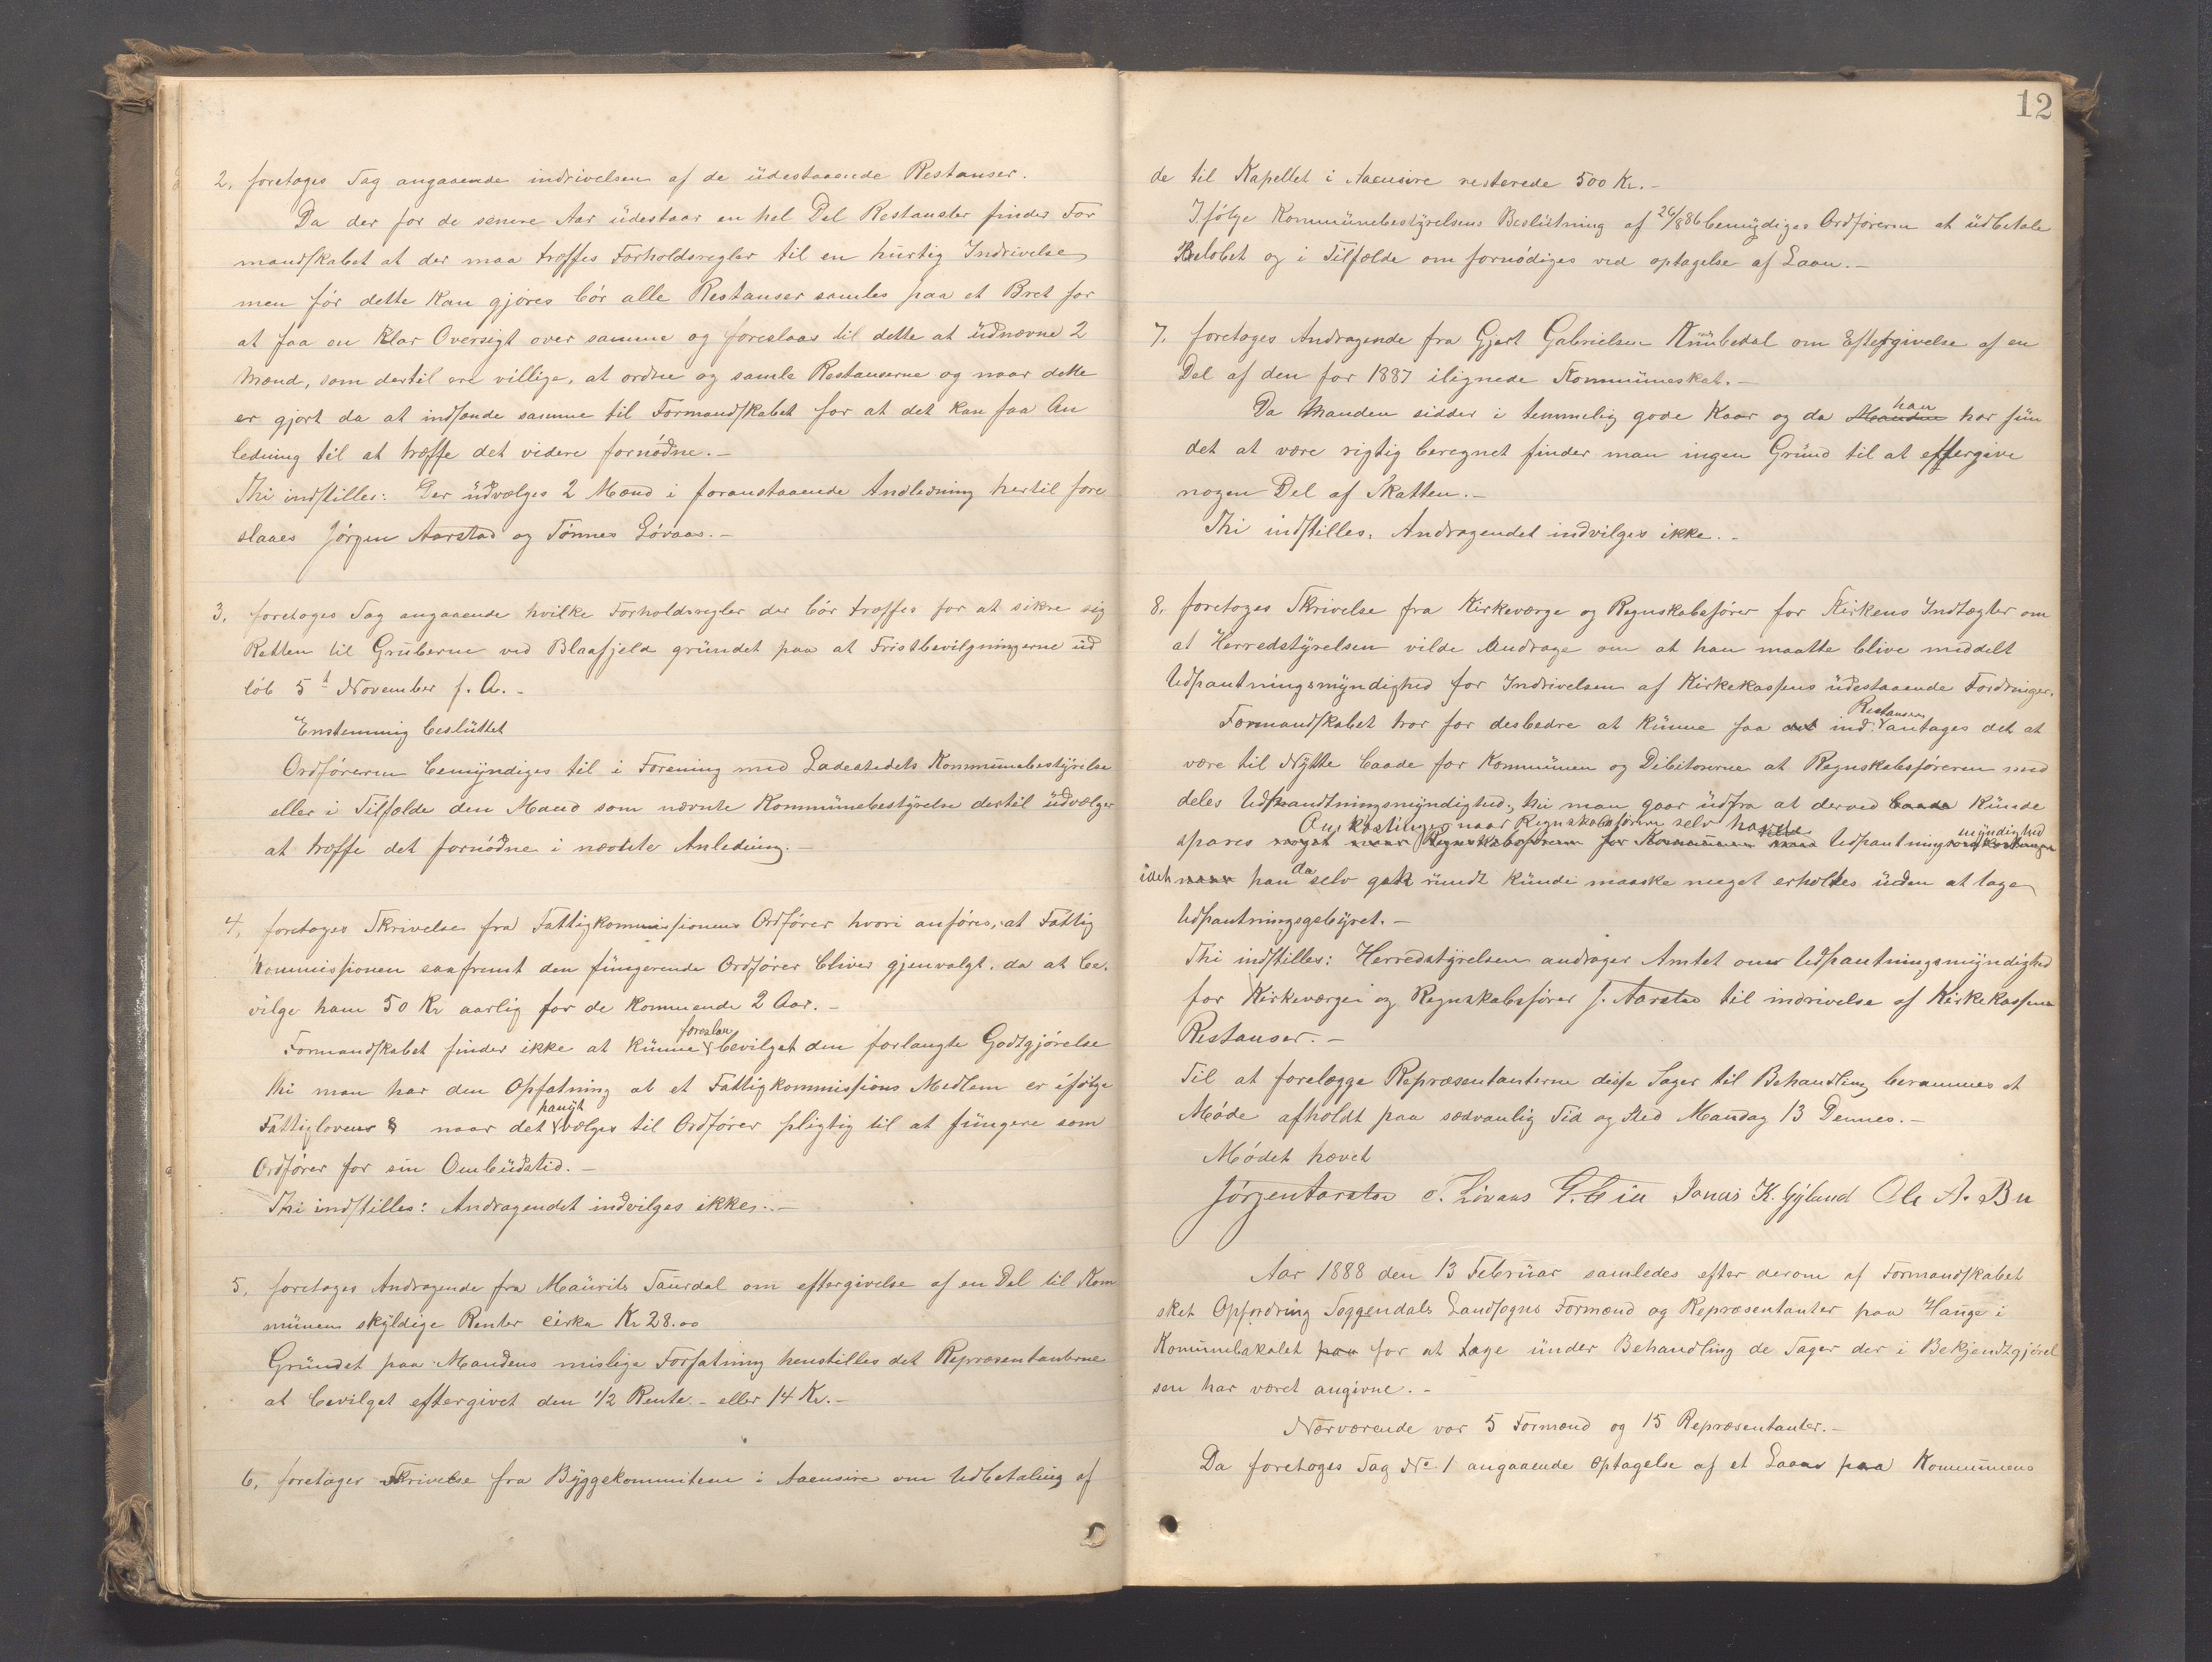 2, foretoges Sag angaaende indrivelsen af de udestaaende Restanser.
Da der for de senere Aar udestaar en hel Del Restanster finder For
mandskabet at der maa træffes Forholdsregler til en hurtig Indrivelse
men før dette kan gjøres bør alle Restanser samles paa et Bret for
at faa en klar Oversigt over samme og foreslaas til dette at udnævne 2
Mænd, som dertil ere villige, at ordne og samle Restanserne og naar dette
er gjort da at indsænde samme til Formandskabet for at det kan faa An
ledning til at træffe det videre fornødne.-
Thi indstilles: Der udvælges 2 Mænd i foranstaaende Andledning hertil fore
slaaes Jørgen Aarstad og Tønnes Løvaas.-
3, foretoges Sag angaaende hvilke Forholdsregler der bør træffes for at sikre sig
Retten til Gruberne ved Blaafjeld grundet paa at Fristbevilgningerne ud
løb 5t November f. A.-
Enstemmig besluttet
Ordføreren bemyndiges til i Forening med Ladestedets Kommunebestyrelse
eller i Tilfælde den Mand som nævnte Kommunebestyrelse dertil udvælger
at træffe det fornødne i nævnte Anledning.-
4, foretoges Skrivelse fra Fattigkommissionens Ordfører hvori anføres, at Fattig
Kommissionen saafremt den fungerende Ordfører bliver gjenvalgt, da at be-
vilge ham 50 Kr aarlig for de kommende 2 Aar.-
foreslaa
Formandskabet finder ikke at kunne bevilget den forlangte Godtgjørelse
thi man har den Opfatning at et Fattigkommissions Medlem er ifølge
paanyt
Fattiglovens § naar det vælges til Ordfører pligtig til at fungere som
Ordfører for sin Ombudstid.-
Thi indstilles: Andragendet indvilges ikke.-
5, foretoges Andragende fra Maurits Saurdal om eftergivelse af en Del til Kom
munen skyldige Renter cirka Kr 28.00
Grundet paa Mandens mislige Forfatning henstilles det Repræsentanterne
at bevilget eftergivet den 1/2 Rente - eller 14 Kr.-
6, foretoges Skrivelse fra Byggekommiteen i Aaensire om Udbetaling af
12
de til Kapellet i Aaensire resterede 500 Kr.-
Ifølge Kommunebestyrelsens Beslutning af 26/8 86 bemyndiges Ordføreren at udbetale
Beløbet og i Tilfælde om fornødiges ved optagelse af Laan.-
7, foretoges Andragende fra Gjert Gabrielsen Knubedal om Eftergivelse af en
Del af den for 1887 ilignede Kommuneskat.-
han
Da Manden sidder i temmelig gode Kaar og da Manden har fun
det at være rigtig beregnet finder man ingen Grund til at eftergive
nogen Del af Skatten.-
Thi indstilles, Andragendet indvilges ikke.-
8, foretoges Skrivelse fra Kirkeværge og Regnskabsfører for Kirkens Indtægter om
at Herredstyrelsen vilde Andrage om at han maatte blive meddelt
Udpantningsmyndighed for Indrivelsen af Kirkekassens udestaaende Fordringer.
Restanserne
Formandskabet tror for desbedre at kunne faa det ind antages det at
være til Nytte baade for Kommunen og Debitorerne at Regnskabsføreren med
deles Udpandtningsmyndighed, thi man gaar udfra at derved baade kunde
Omkostninger naar Regnskabsføreren selv havde myndighed
spares noget naar Regnskabsføreren for Kommunen Udpantningsomkostninger
da
idet naar han selv gik rundt kunde maaske meget erholdes uden at tage
Udpantningsgebyret.-
Thi indstilles: Herredstyrelsen andrager Amtet om Udpantningsmyndighed
for Kirkeværge og Regnskabsfører J. Aarstad til indrivelse af Kirkekassens
Restanser.-
Til at forelægge Repræsentanterne disse Sager til Behandling berammes et
Møde afholdt paa sædvanlig Tid og Sted Mandag 13 Dennes.-
Mødet hævet
Jørgen Aarstad T. Løvaas Jonas K. Gyland Ole A. Bu
Aar 1888 den 13 Februar samledes efter derom af Formandskabet
sket Opfordring Soggendals Landsogns Formænd og Repræsentanter paa Hauge i
Komunelokalet paa for at tage under Behandling de Sager der i Bekjendtgjørel
sen har været angivne.-
Nærværende var 5 Formænd og 15 Repræsentanter.-
Da foretoges Sag No 1 angaaende Optagelse af et Laan paa Kommunens